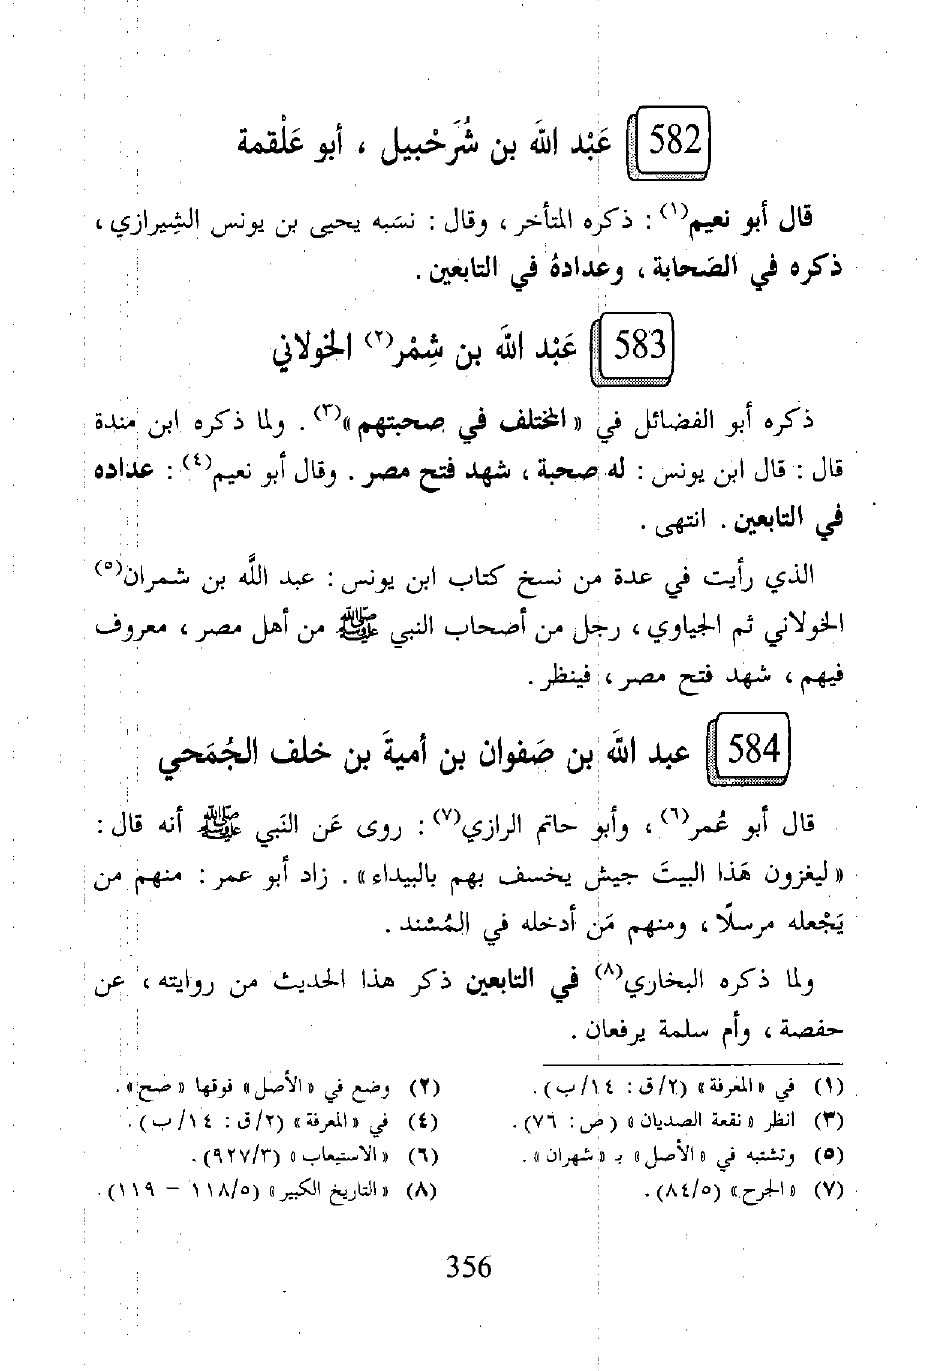 582 عَبْد اللَه بن شُرَحْبيل ، أبو عَلْقمة
قال أبو نعيم(١) : ذكره المتأخر ، وقال : نسَبه يحيى بن يونس الشِيرازي ،
ذكره في الصَحابة ، وعدادهُ في التابعين .
583 عَبْد اللَه بن شِمْر(٢) الخولاني
ذكره أبو الفضائل في « المختلف في صحبتهم »(٣) . ولما ذكره ابن مندة
قال : قال ابن يونس : له صحبة ، شهد فتح مصر . وقال أبو نعيم(٤) : عداده
في التابعين . انتهى .
الذي رأيت في عدة من نسخ كتاب ابن يونس : عبد اللَّه بن شمران(٥)
الخولاني ثم الجياوي ، رجل من أصحاب النبي ﷺ من أهل مصر ، معروف
فيهم ، شهد فتح مصر ، فينظر .
584 عبد اللَه بن صَفوان بن أميةَ بن خلف الجُمَحي
قال أبو عُمر(٦) ، وأبو حاتم الرازي(٧) : روى عَن النَبي ﷺ أنه قال :
« ليغزون هَذا البيتَ جيش يخسف بهم بالبيداء » . زاد أبو عمر : منهم من
يَجْعله مرسلًا ، ومنهم مَن أدخله في المُسْند .
ولما ذكره البخاري(٨) في التابعين ذكر هذا الحديث من روايته ، عن
حفصة ، وأم سلمة يرفعان .
(١) في « المعرفة » (٢/ ق : ١٤/ ب ) .
(٢) وضع في « الأصل » فوقها « صح » .
(٣) انظر « نقعة الصديان » ( ص : ٧٦) .
(٤) في « المعرفة » (٢/ ق : ١٤/ ب ) .
(٥) وتشتبه في « الأصل » بـ « شهران » .
(٦) « الاستيعاب » (٩٢٧/٣) .
(٧) « الجرح » (٨٤/٥) .
(٨) « التاريخ الكبير » (١١٨/٥ – ١١٩) .
356